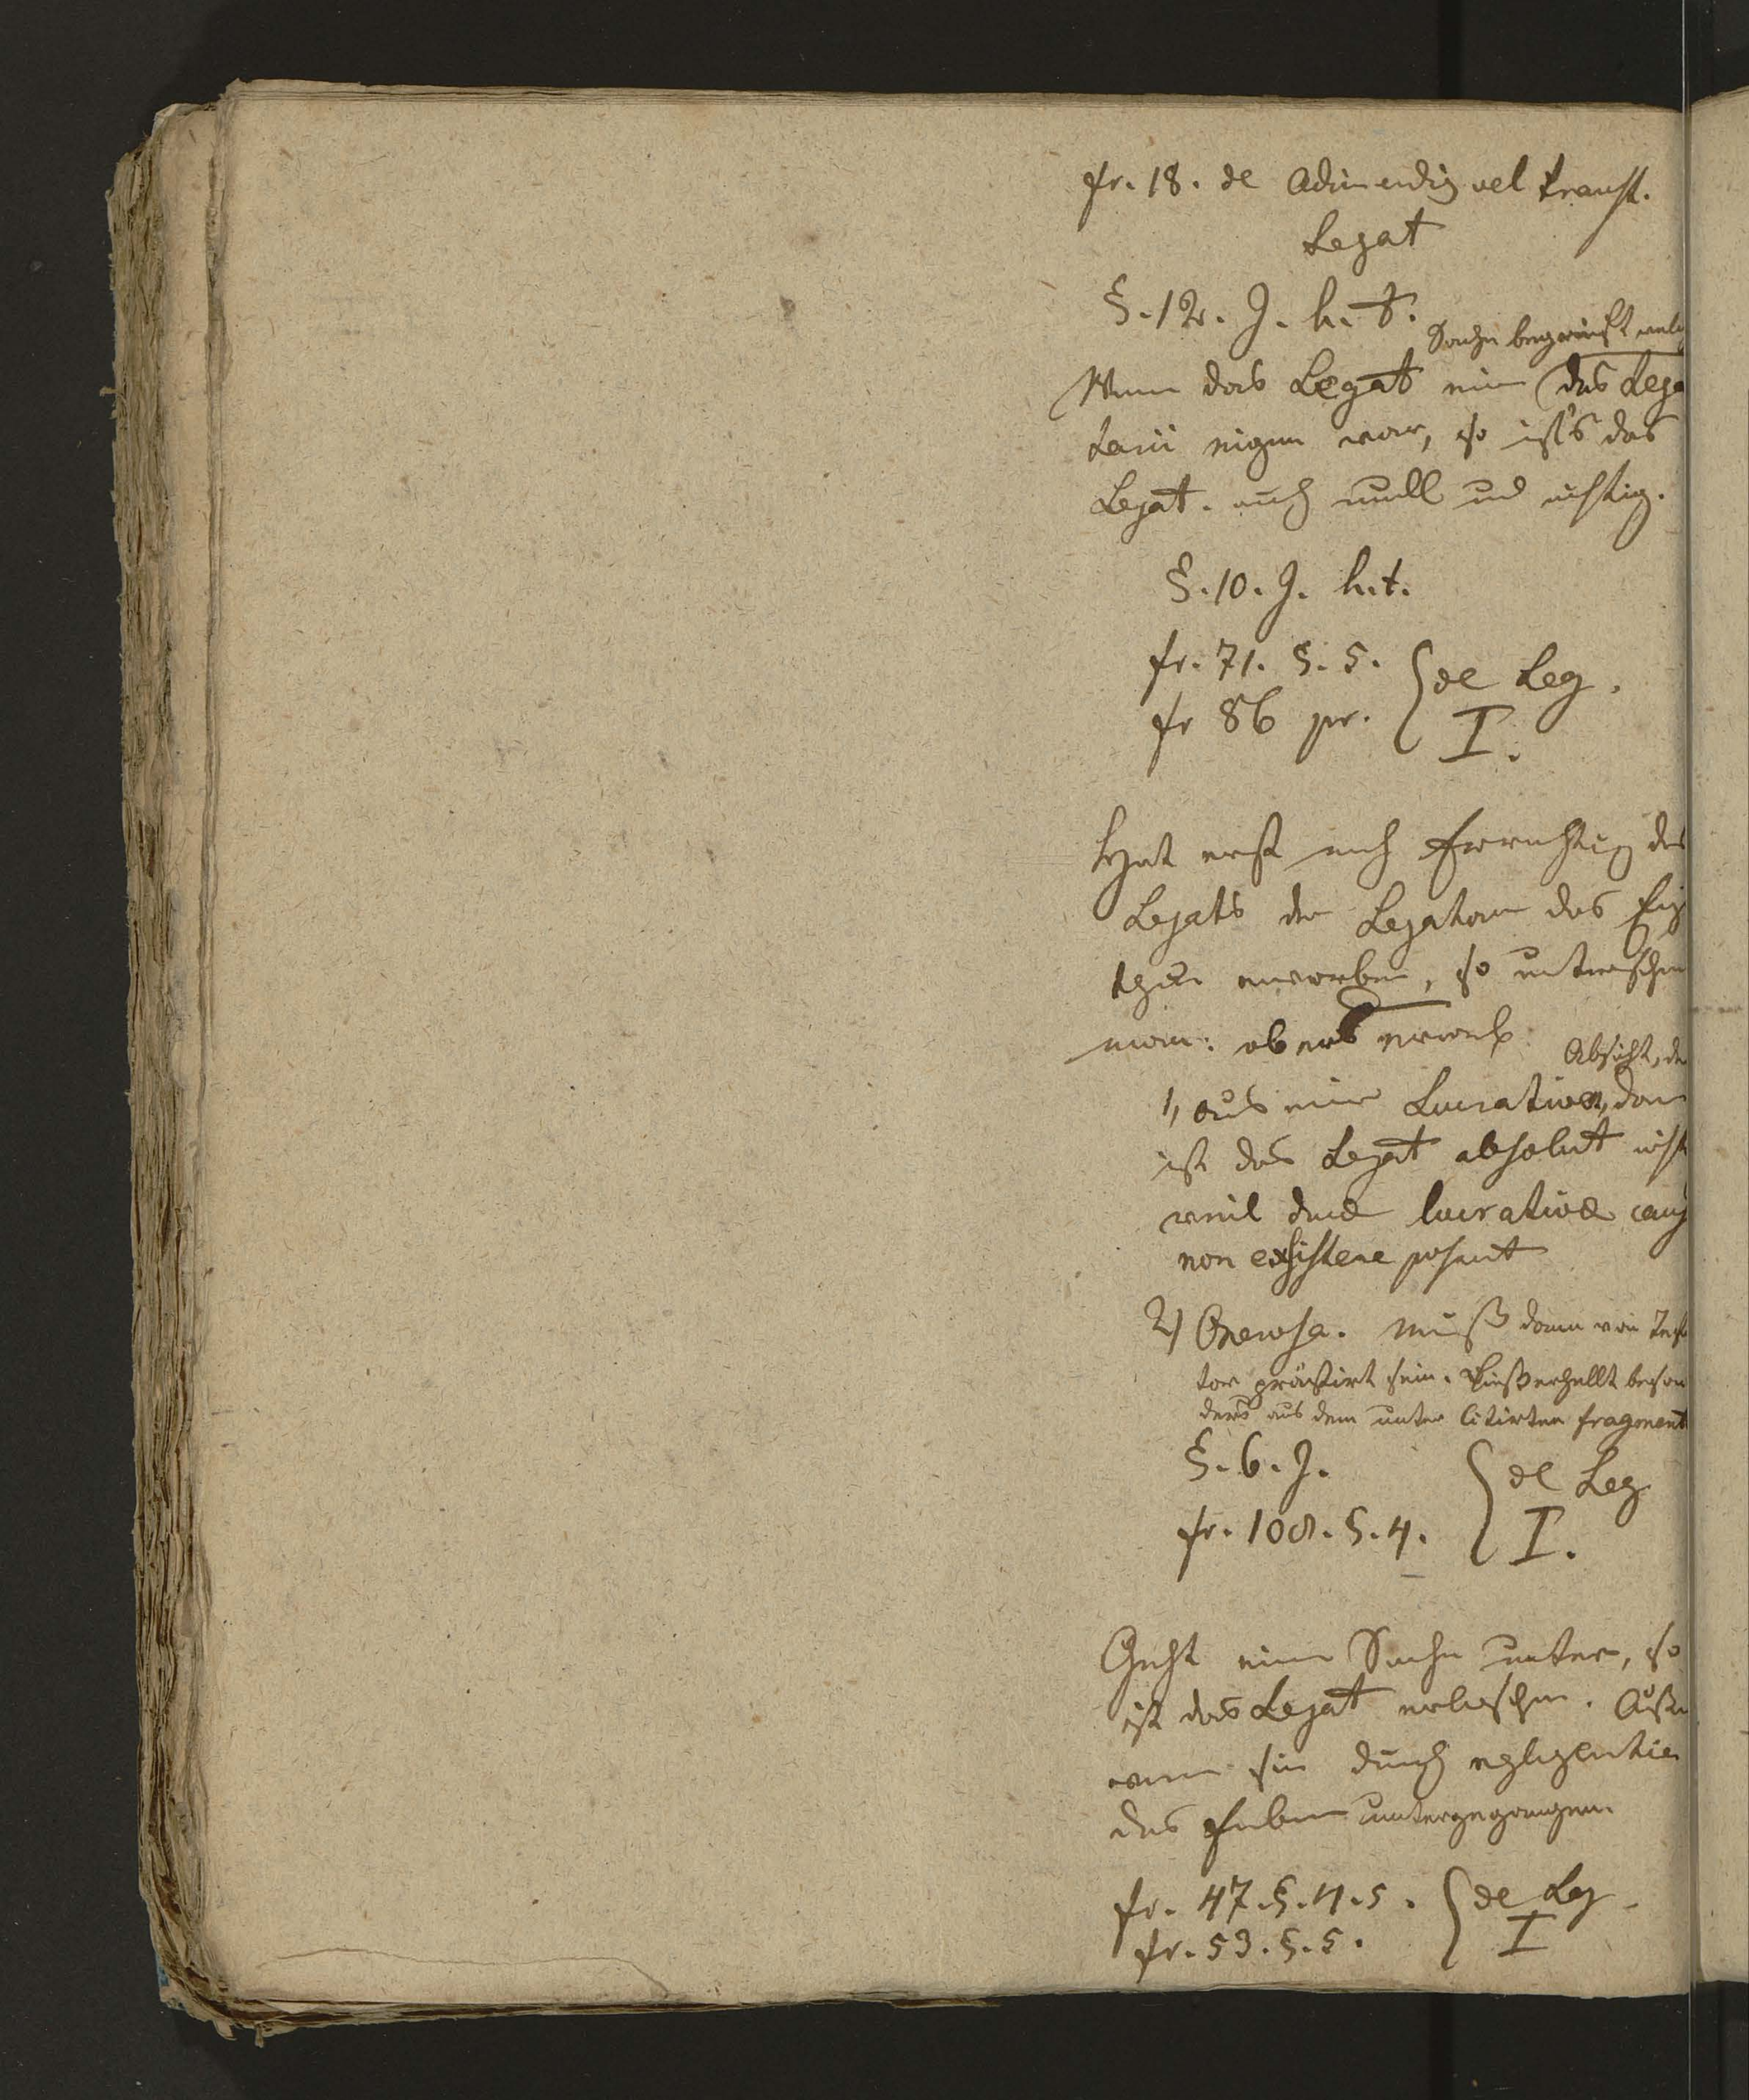 fr. 18. de Adimendis vel transf.
Legat
§. 12. J. h. t.
Sache begreift welch
Wenn das Legat eine das Lega
tarii eigen war, so ist's das
Legat. auch null und nichtig.
§. 10. J. h. t.
fr. 71. §. 5. { de Leg.
fr 86 pr. I.
Hat erst nach Errichtung des
Legats der Legatar das Eig
thum erworben, so unterscheide
man: ob ers erwarb
Absicht, de
1, aus einer Lucrativen, dan
ist das Legat absolut nicht
weil duae lucrativae caus
non exsistere possunt
2) Onerosa. Muß dann vom Testa
tor prästirt sein. Dieß erhellt beson
ders aus dem unter Citirten fragment
§. 6. J. { de Leg
fr. 108. §. 4. I.
Geht eine Sache unter, so
ist das Legat erloschen. Außer
wenn sie durch negligentia
des Erben untergegangen
fr. 47. §. 4. 5. { de Leg.
fr. 53. §. 5. I